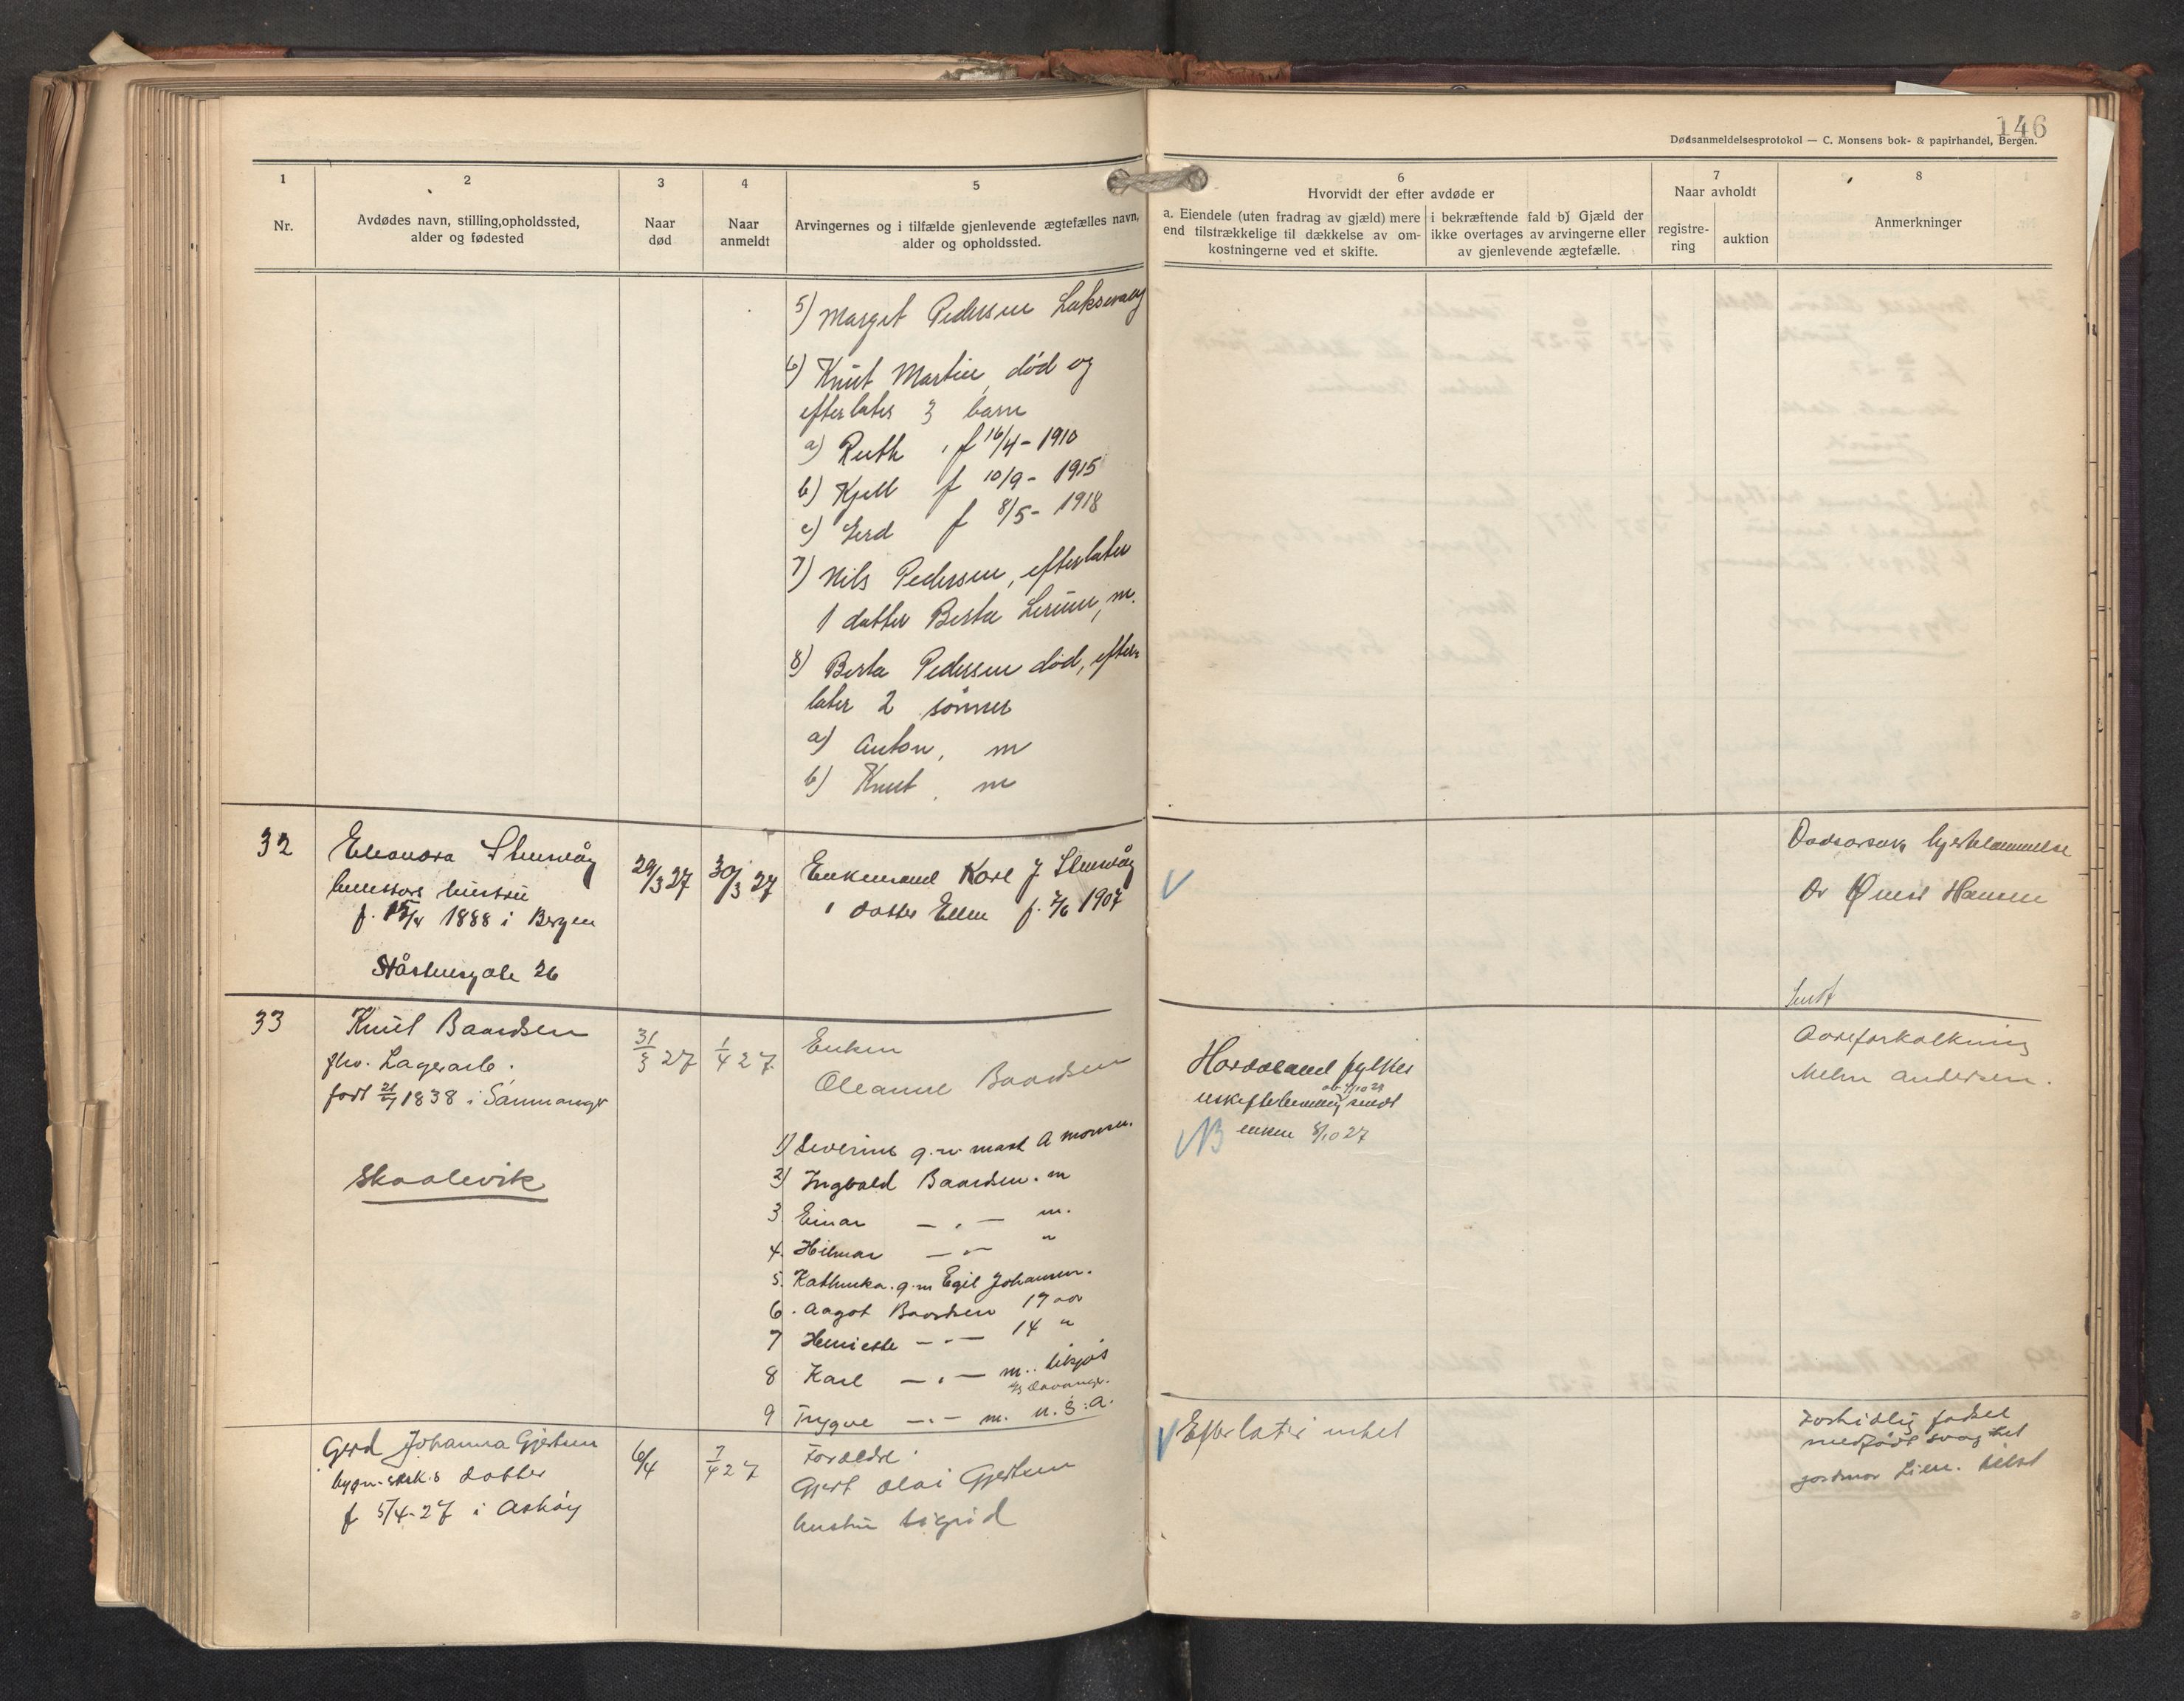 146
Dødsanmeldelsesprotokol — C. Monsens bok- & papirhandel, Bergen.
1
Nr.
2
Avdødes navn, stilling, opholdssted,
alder og fødested
3
Naar
død
4
Naar
anmeldt
5
Arvingernes og i tilfælde gjenlevende ægtefælles navn,
alder og opholdssted.
6
Hvorvidt der efter avdøde er
a. Eiendele (uten fradrag av gjæld) mere
end tilstrækkelige til dækkelse av om-
kostningerne ved et skifte.
i bekræftende fald b) Gjæld der
ikke overtages av arvingerne eller
av gjenlevende ægtefælle.
7
Naar avholdt
registre-
ring
auktion
8
Anmerkninger
5) Margit Pedersen Laksevaag
6) Knut Martin, død og
efterlater 3 barn
a) Ruth f 16/4 - 1910
b) Kjell f 10/9 - 1915
c) Gerd f 8/5 - 1918
7) Nils Pedersen, efterlater
1 datter Berta m.
8) Berta Pedersen død, efter-
later 2 sønner
a) Anton, m
b) Knut, m
32
Eleonora
hustru
f. 1888 i Bergen
26
29/3 27
30/3 27
Enkemand Karl J
1 datter Ellen f. 1907
Dødsårsak hjertelammelse
Dr Hansen
33
Knut Baardsen
fhv. Lagerarb.
født 1838 i Samnanger
Skaalevik
31/3 27
1/4 27
Enken
Oleanne Baardsen
1) Severine g.m. A Monsen.
2) Ingvald Baardsen. m
3 Einar — . — m.
4. Hilmar — . — "
5. Kathinka. g.m Egil Johansen.
6. Aagot Baardsen 17 aar
7 Henriette — . — 14 "
8 Karl — . — m.
9 Trygve — . — m. U.S.A.
Hordaland fylkes
sendt
enken 8/10 27
NB
Aareforkalkning
Andersen.
Gerd Johanna Gjertsen
datter
f 5/4-27 i Askøy
6/4
7/4 27
Forældre
Gjert Olai Gjertsen
hustru Sigrid
Efterlater intet
For tidlig fødsel
medfødt svaghet
jordmor Lien.